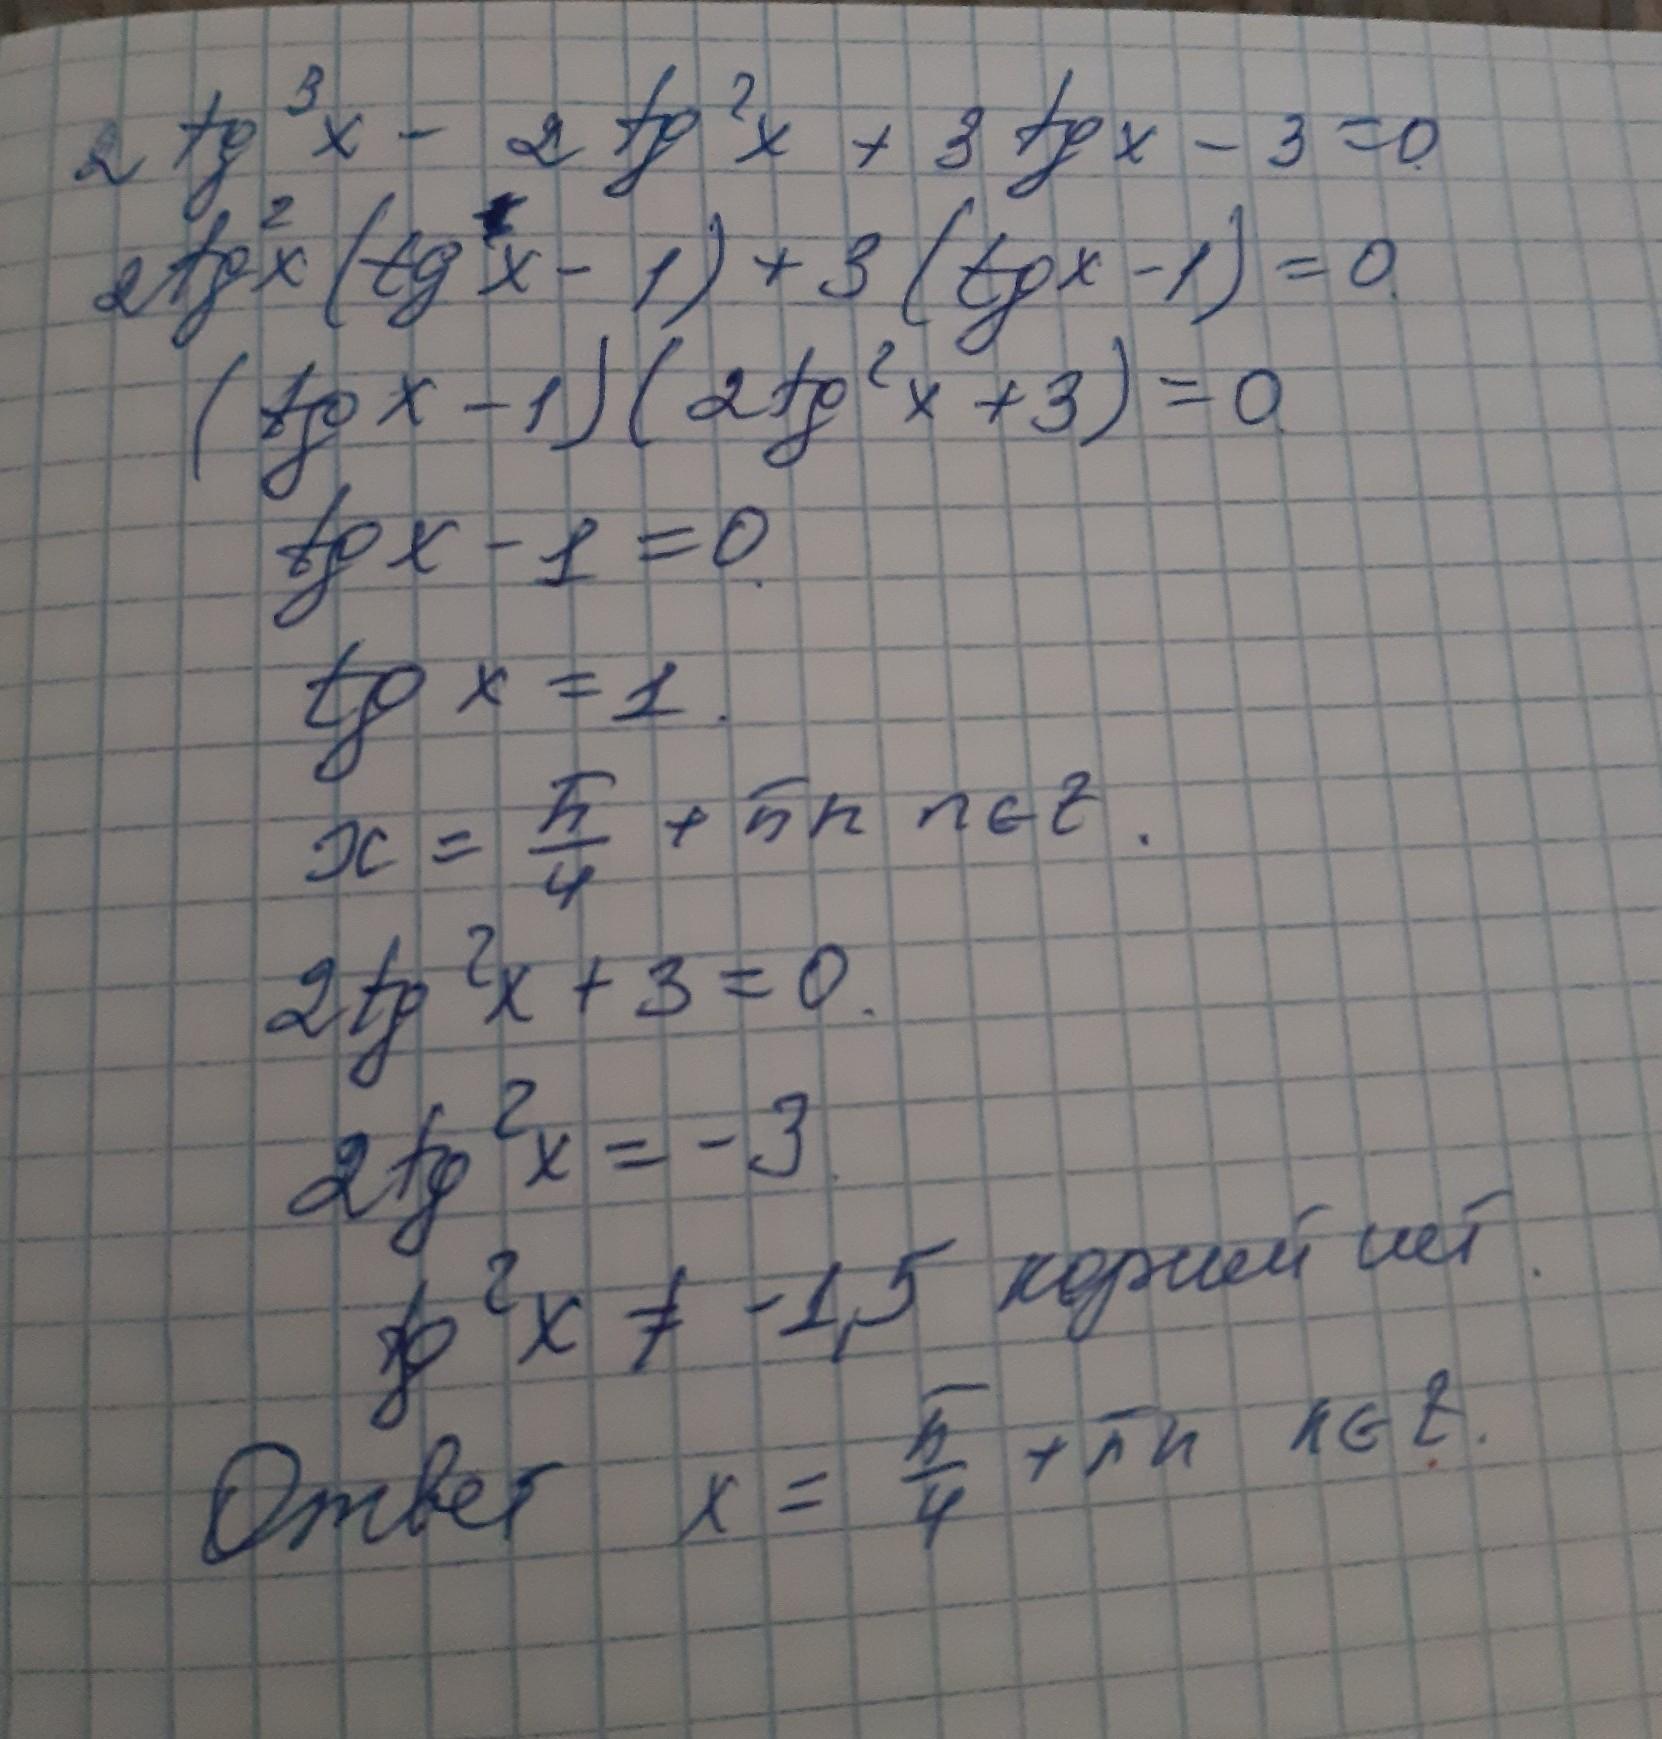 2 tg³x - 2 tg²x + 3 tg x - 3 = 0
2tg²x (tg x - 1) + 3 (tg x - 1) = 0
(tg x - 1) (2 tg²x + 3) = 0
tg x - 1 = 0
tg x = 1.
x = π/4 + πn n∈Z.
2tg²x + 3 = 0.
2tg²x = -3
tg²x ≠ -1,5 корней нет.
Ответ x = π/4 + πn n∈Z.